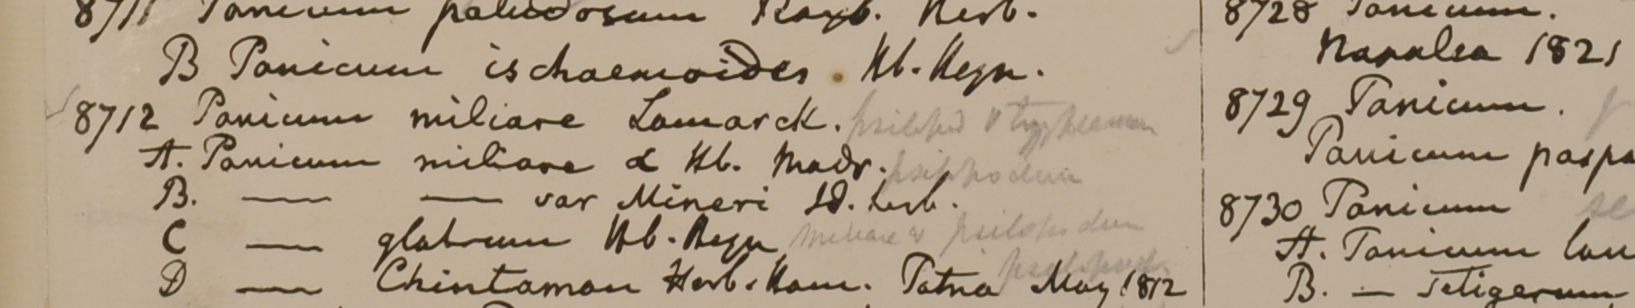 8711 Panicum paludosum Roxb. Herb.
B Panicum ischaemoides. Hb. Heyn.
8712 Panicum miliare Lamarck.
A. Panicum miliare α Hb. Madr. psilopodium
B. — — var Mineri Id. herb.
C — glabrum Hb. Heyn miliare v psilopodium
D — Chintaman Herb. Ham. Patna May 1812
8728 Panicum.
Napalea 1821
8729 Panicum.
Panicum paspa
8730 Panicum
A. Panicum lan
B. — setigerum